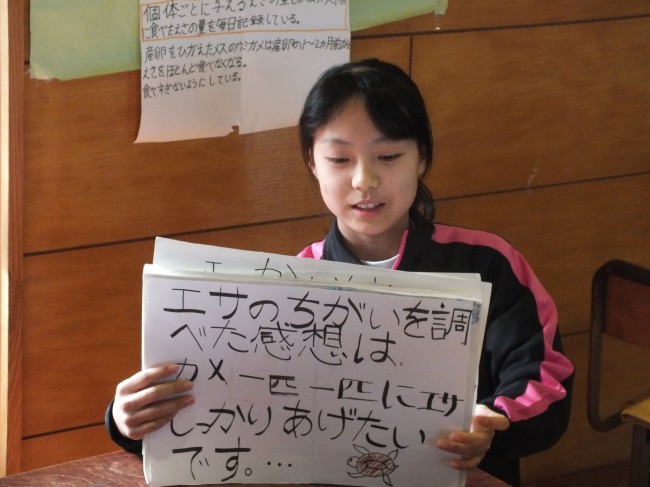 個体ごとに与えるえさの量を
に食べたえさの量を毎日記録している。
産卵をひかえたメスのウミガメは産卵の1~2ヵ月前から
えさをほとんど食べなくなる。
食べすぎないようにしている。
エサのちがいを調
べた感想は、
カメ一匹一匹にエサ
しっかりあげたい
です。…